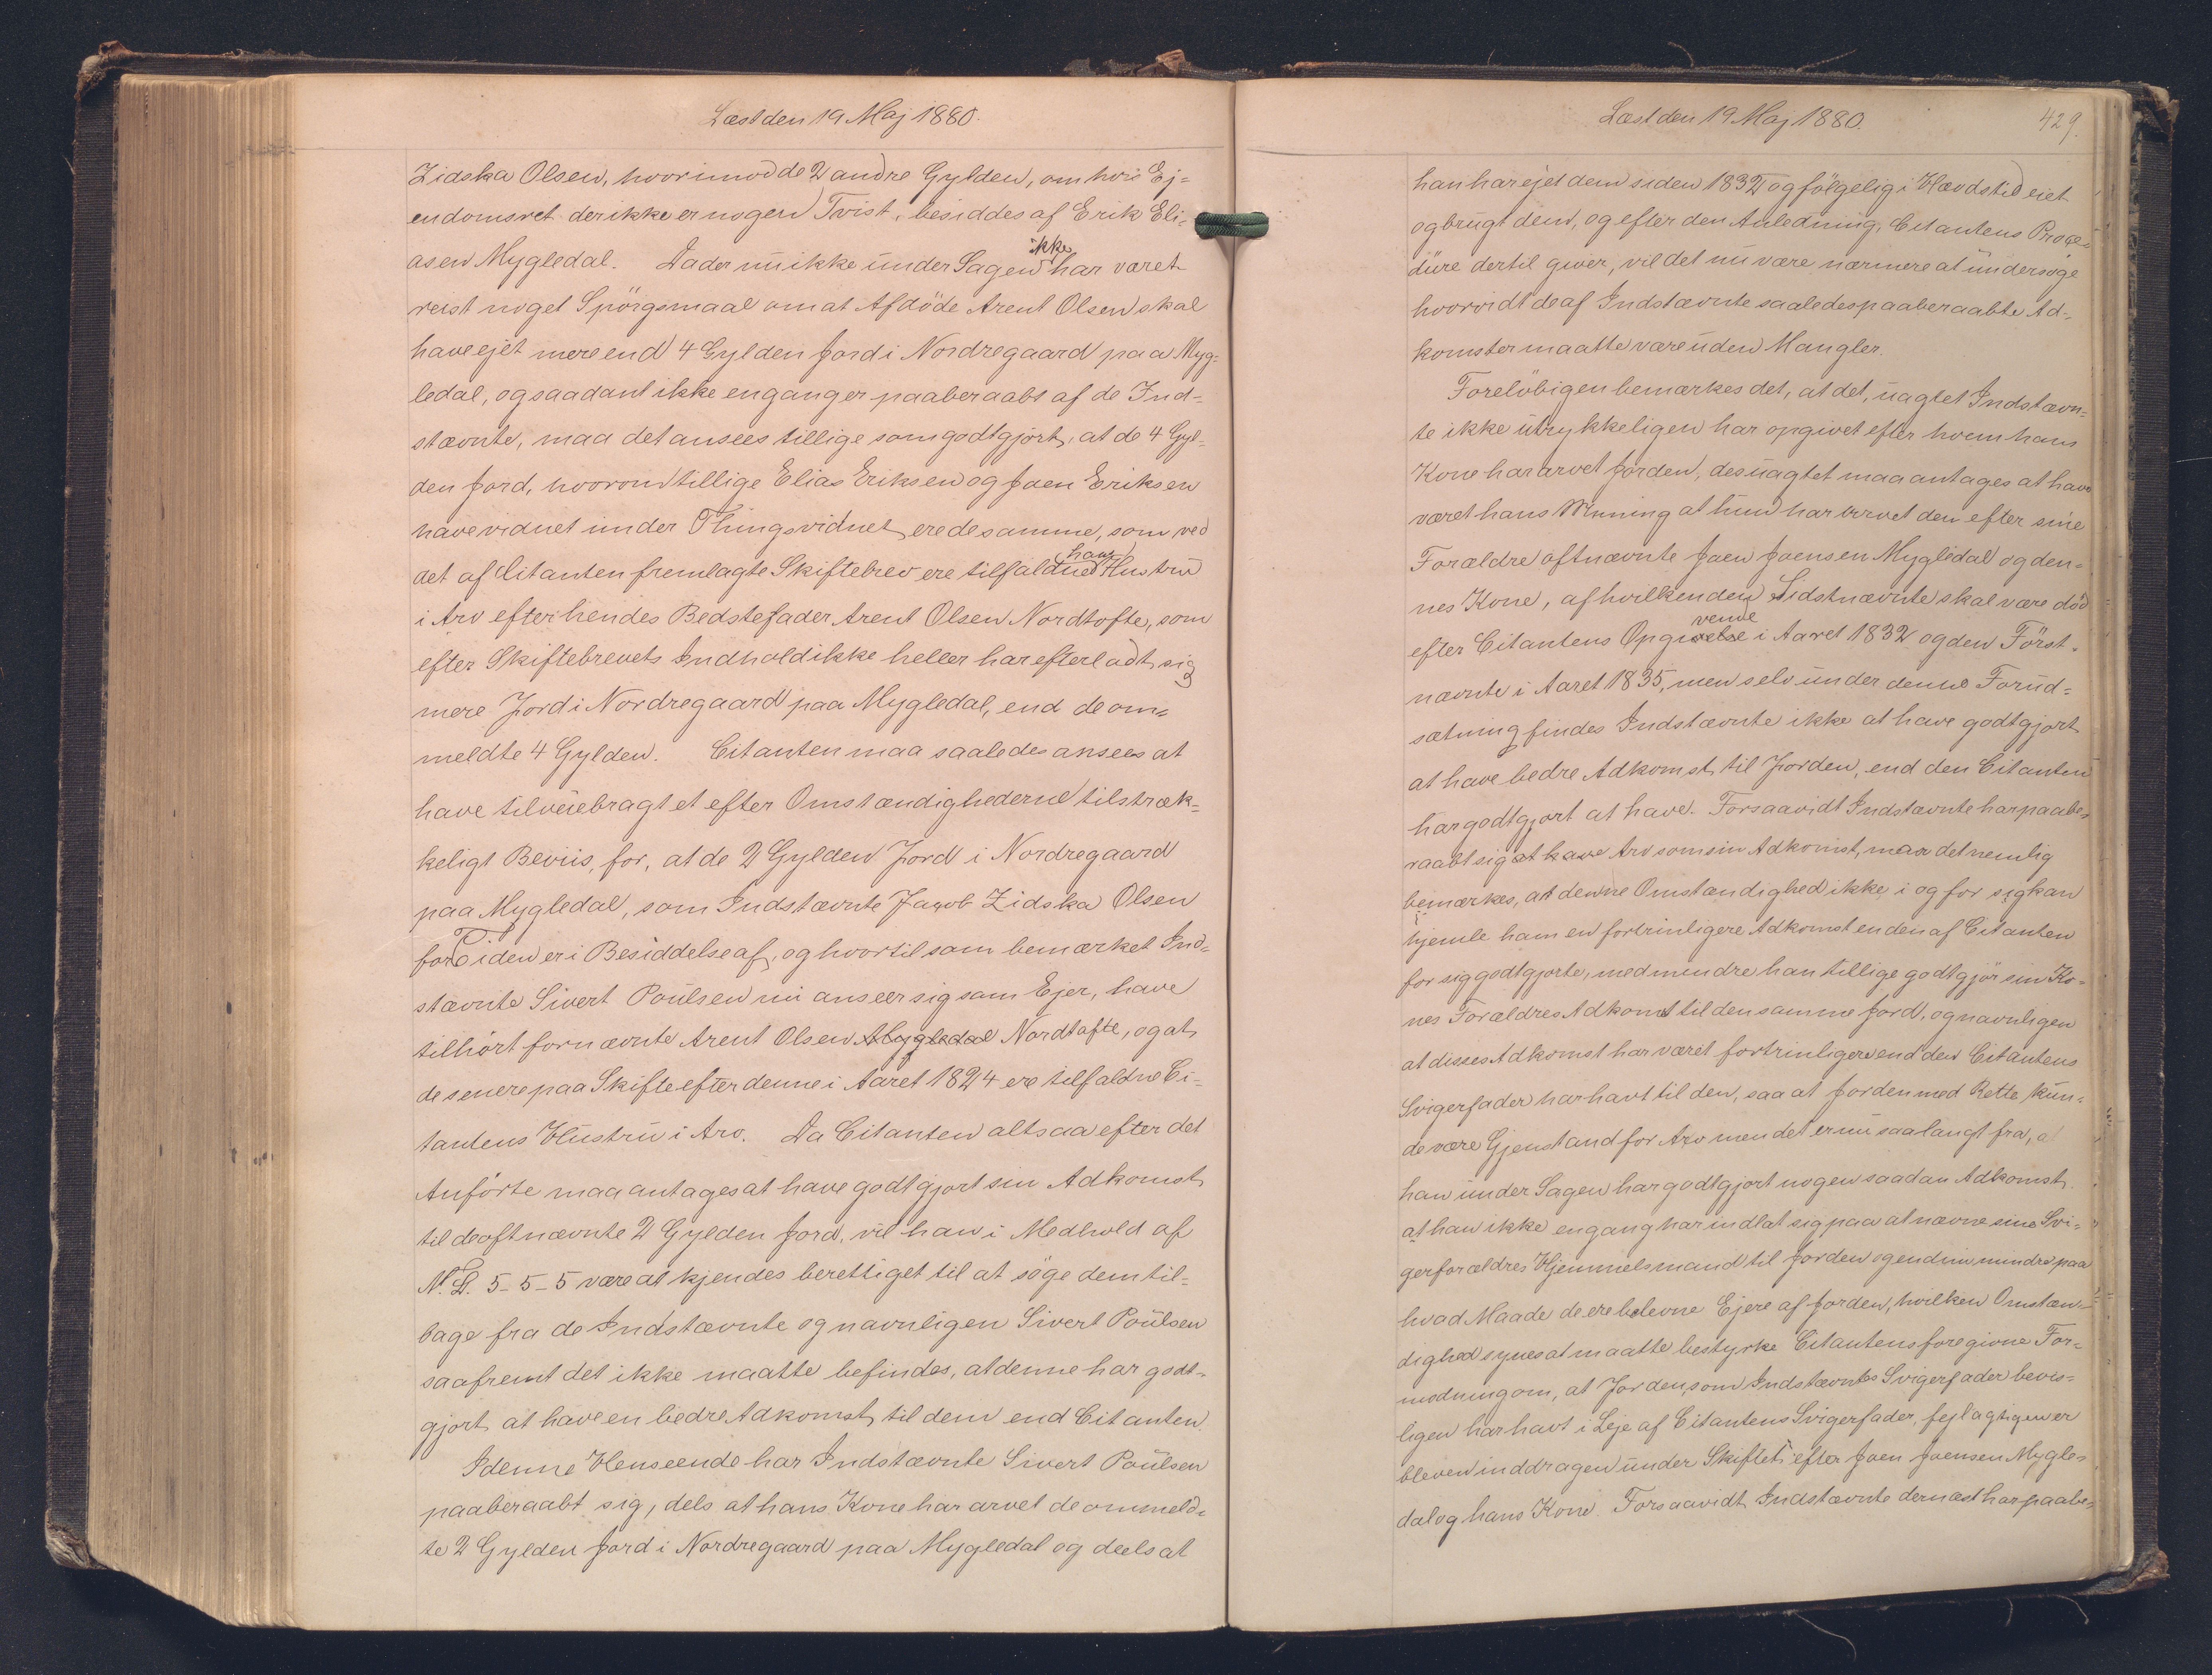 Læst den 19 Maj 1880.
Zidska Olsen, hvorimod de 2 andre Gylden, om hvis Ej-
endomsret der ikke er nogen Tvist, besiddes af Erik Eli-
asen Mygledal. Da der nu ikke under Sagen ikke har været
reist noget Spörgsmaal om at Afdöde Arent Olsen skal
have ejet mere end 4 Gylden Jord i Nordregaard paa Myg-
ledal, og saadant ikke engang er paaberaabt af de Ind-
stævnte, maa det ansees tillige som godtgjort, at de 4 Gyl-
den Jord, hvorom tillige Elias Eriksen og Joen Eriksen
have vidnet under Thingsvidnet, ere de samme, som ved
det af Citanten fremlagte Skiftebrev ere tilfaldne hans Hustru
i Arv efter hendes Bedstefader Arent Olsen Nordtofte, som
efter Skiftebrevets Indhold ikke heller har efterladt sig
mere Jord i Nordregaard paa Mygledal, end de om-
meldte 4 Gylden. Citanten maa saaledes ansees at
have tilveiebragt et efter Omstændighederne tilstræk-
keligt Beviis, for, at de 2 Gylden Jord i Nordregaard
paa Mygledal, som Indstævnte Jacob Zidska Olsen
for Tiden er i Besiddelse af, og hvortil som bemærket Ind-
stævnte Sivert Poulsen nu anseer sig som Ejer, have
tilhört fornævnte Arent Olsen Mygledal Nordtofte, og at
de senere paa Skifte efter denne i Aaret 1824 ere tilfaldne Ci-
tantens Hustru i Arv. Da Citanten altsaa efter det
Anförte maa antages at have godtgjort sin Adkomst
til de oftnævnte 2 Gylden Jord, vil han i Medhold af
N. L. 5-5-5 være at kjendes berettiget til at söge dem til-
bage fra de Indstævnte og navnligen Sivert Poulsen
saafremt det ikke maatte befindes, at denne har godt-
gjort at have en bedre Adkomst til dem end Citanten.
I denne Henseende har Indstævnte Sivert Poulsen
paaberaabt sig, dels at hans Kone har arvet de ommeld-
te 2 Gylden Jord i Nordregaard paa Mygledal og deels at
Læst den 19 Maj 1880.
429.
han har ejet dem siden 1832 og fölgelig i Hævdstid eiet
og brugt dem, og efter den Anledning, Citantens Proce-
dure dertil giver, vil det nu være nærmere at undersöge
hvorvidt de af Indstævnte saaledes paaberaabte Ad-
komster maatte være uden Mangler.
Forelöbigen bemærkes det, at det, uagtet Indstævn-
te ikke utrykkeligen har opgivet efter hvem hans
Kone har arvet Jorden, desuagtet maa antages at have
været hans Mening at hun har arvet den efter sine
Forældre oftnævnte Joen Joensen Mygledal og den-
nes Kone, af hvilken den Sidstnævnte skal være död
efter Citantens Opgivelse vende i Aaret 1832 og den Först-
nævnte i Aaret 1835, men selv under denne Forud-
sætning findes Indstævnte ikke at have godtgjort
at have bedre Adkomst til Jorden, end den Citanten
har godtgjort at have. Forsaavidt Indstævnte har paabe-
raabt sig at have Arv som sin Adkomst, maa det nemlig
bemærkes, at denne Omstændighed ikke i og for sig kan
hjemle ham en fortrinligere Adkomst end den af Citanten
for sig godtgjorte, med mindre han tillige godtgjör sin Ko-
nes Forældres Adkomst til den samme Jord, og navnligen
at disses Adkomst har været fortrinligere end den Citantens
Svigerfader har havt til den, saa at Jorden med Rette kun-
de være Gjenstand for Arv men det er nu saa langt fra, at
han under Sagen har godtgjort nogen saadan Adkomst,
at han ikke engang har indlat sig paa at nævne sine Svi-
gerforældres Hjemmelsmand til Jorden og endnu mindre paa
hvad Maade de ere blevne Ejere af Jorden, hvilken Omstæn-
dighed synes at maatte bestyrke Citantens foregivne For-
modning om, at Jorden, som Indstævntes Svigerfader bevis-
ligen har havt i Leje af Citantens Svigerfader, fejlagtigen er
bleven inddragen under Skiftet efter Joen Joensen Mygle-
dal og hans Kone. Forsaavidt Indstævnte dernæst har paabe-